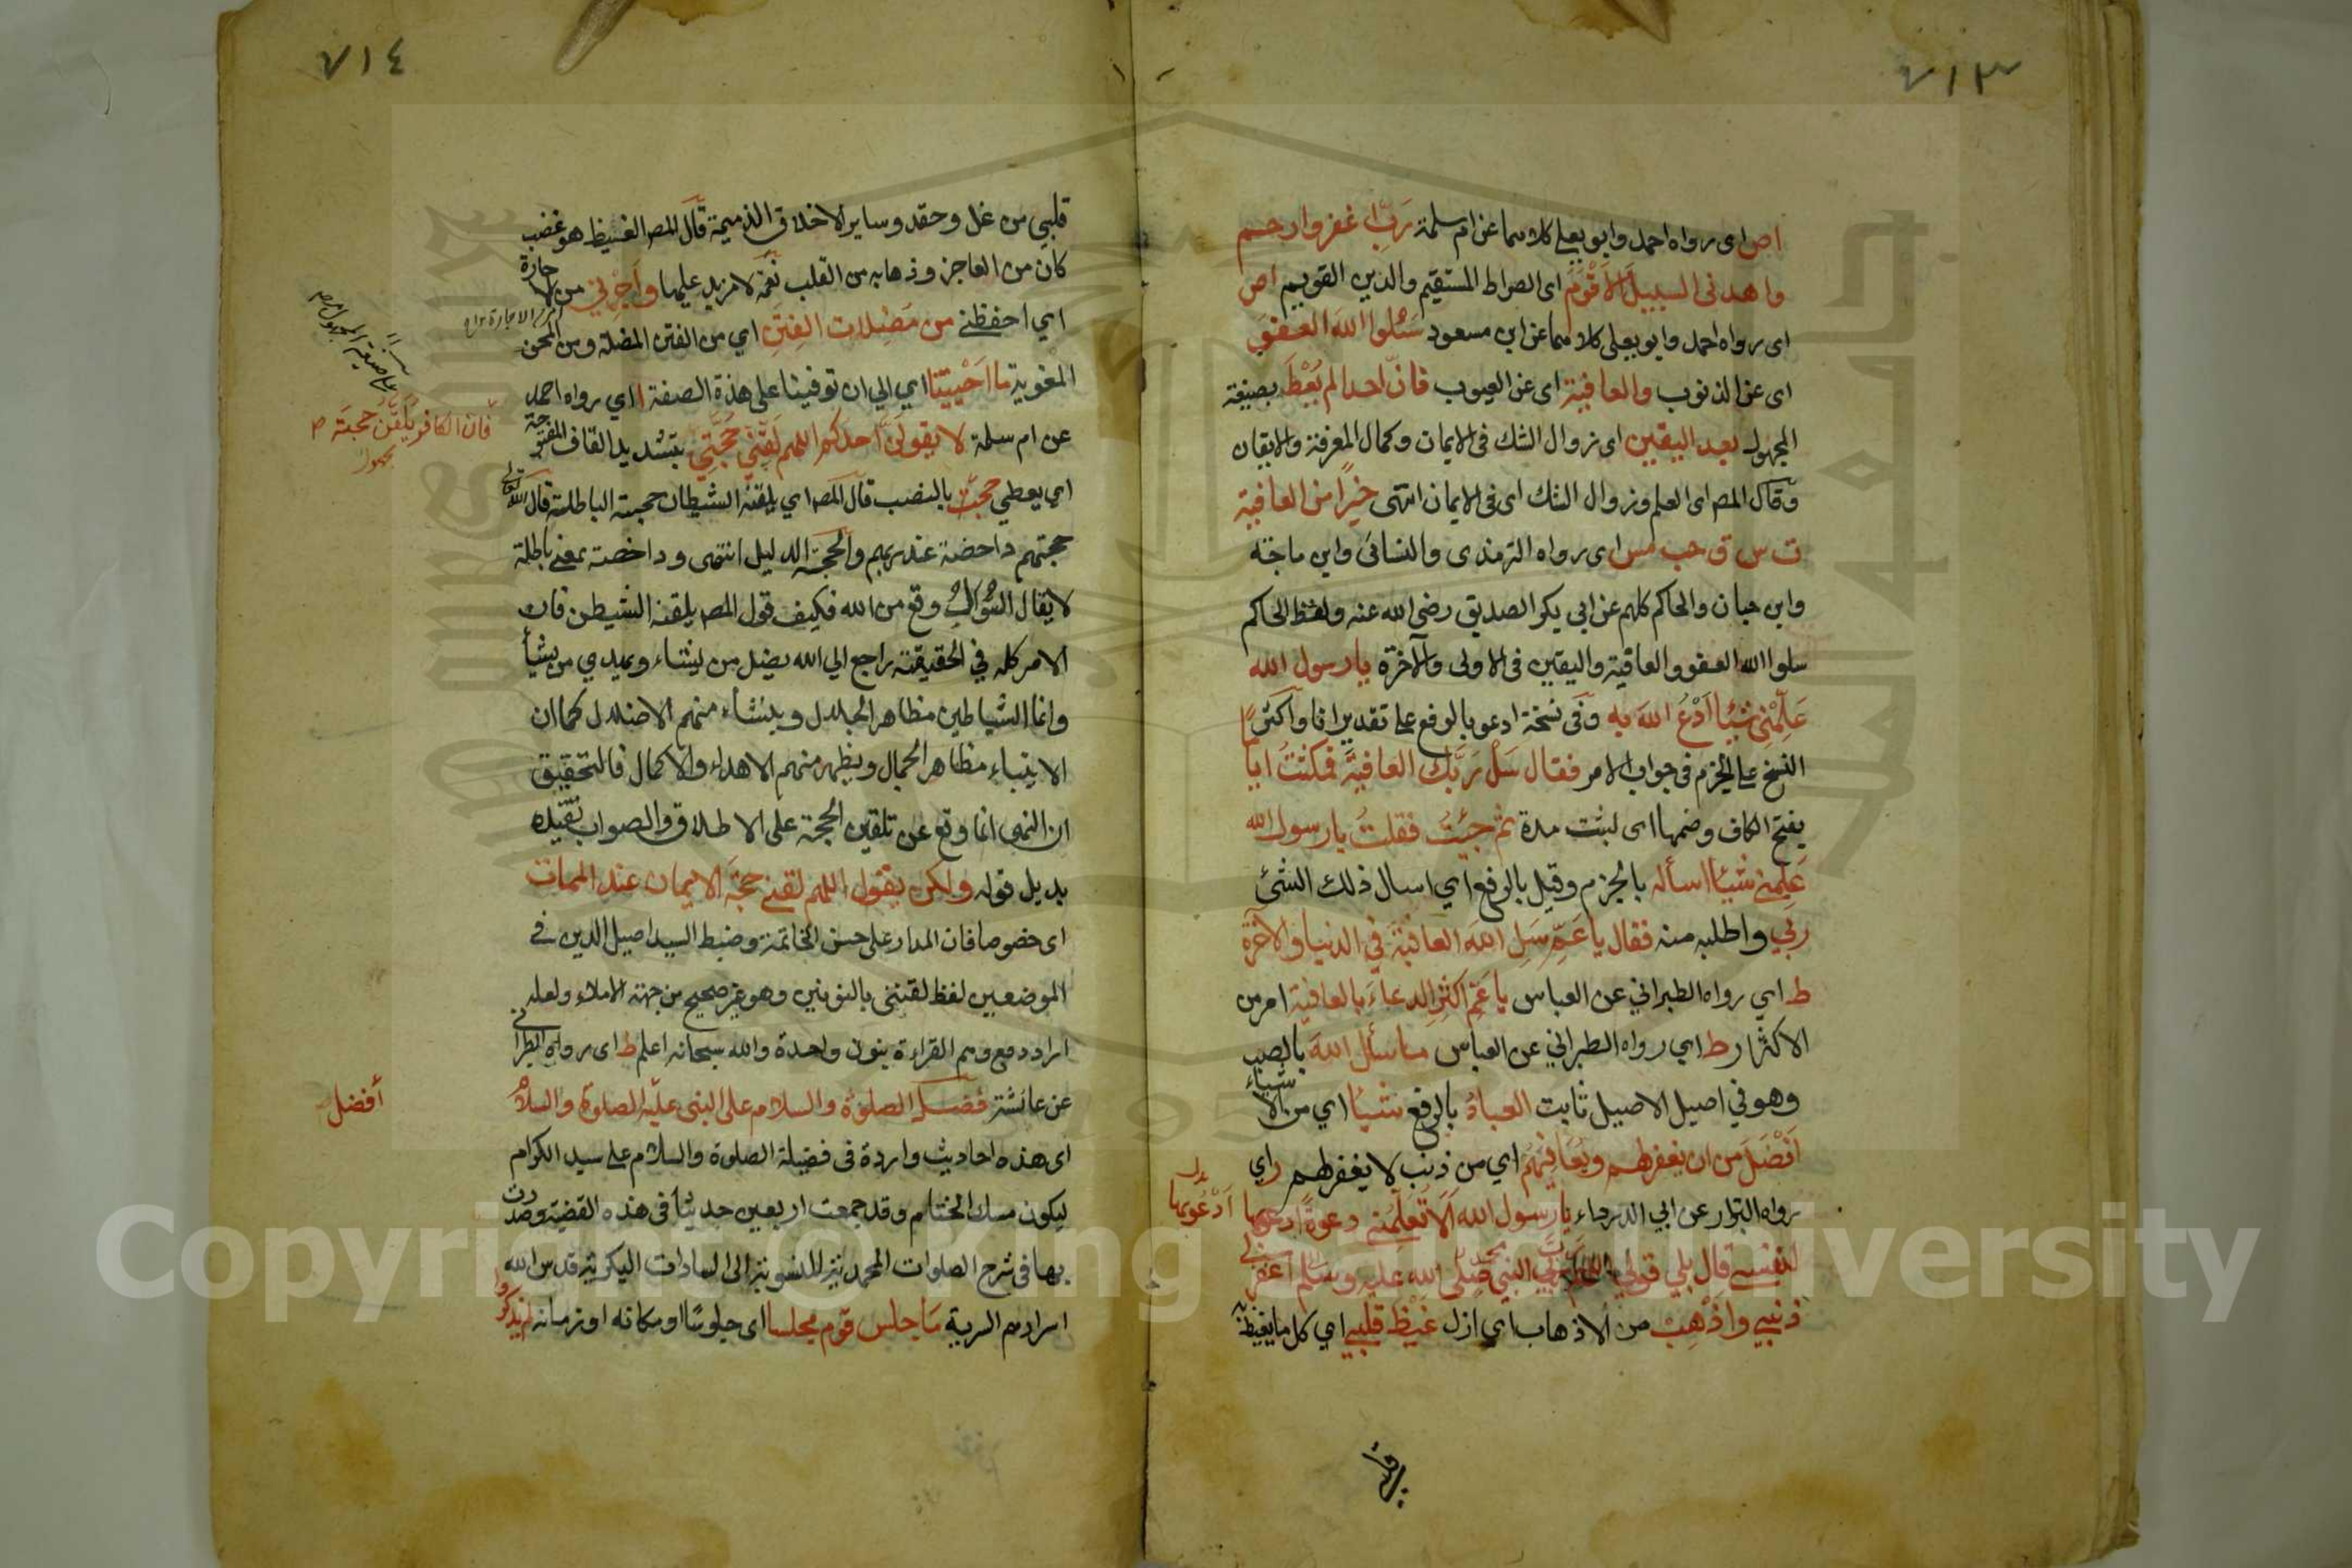 ٧١٣
اص اى رواه احمد وابو يعلى كلاهما عن ام سلمة رَبِّ اغفر وارحم
واهدنى السبيل الاَقْوَمَ اى الصراط المستقيم والدين القويم اص
اى رواه احمد وابو يعلى كلاهما عن ابن مسعود سَلُوا اللهَ العفوَ
اى عن الذنوب والعافية اى عن العيوب فانّ احدا لم يُعْطَ بصيغة
المجهول بعد اليقين اى زوال الشك فى الايمان وكمال المعرفة والايقان
وقال المص اى العلم وزوال الشك اى فى الايمان انتهى خيرًا من العافية
ت س ق حب مس اى رواه الترمذى والنسائى وابن ماجة
وابن حبان والحاكم كلهم عن ابي بكر الصديق رضى الله عنه ولفظ الحاكم
سلوا الله العفو والعافية واليقين فى الاولى والآخرة يا رسول الله
عَلِّمْنِي شيئا اَدْعُ اللهَ به وفى نسخة ادعو بالرفع على تقدير انا واكثر
النسخ على الجزم فى جواب الامر فقال سَلْ رَبَّك العافيةَ فمكثتُ اياما
بفتح الكاف وضمها اى لبثت مدة ثم جِئتُ فقلتُ يا رسول الله
عَلِّمني شيئا اسأله بالجزم وقيل بالرفع اي اسال ذلك الشئ
ربي واطلبه منه فقال يا عَمِّ سَلِ اللهَ العافيةَ في الدنيا والآخرة
ط اي رواه الطبراني عن العباس يا عَمّ اَكثِرِ الدعاءَ بالعافية امر من
الاكثار ط اي رواه الطبراني عن العباس ما سأل اللهَ بالنصب
وهو في اصيل الاصيل ثابت العبادُ بالرفع شيئا اي من الاشياء
اَفْضَلَ من ان يغفر لهم ويُعَافِيَهُم اي من ذنب لا يغفر لهم ر اي
رواه البزار عن ابي الدرداء يا رسول الله اَلَا تُعَلِّمُني دعوةً ادعو بها
اَدْعُو بها
لنفسي قال بلي قولي اللهم رب النبي محمد صلى الله عليه وسلم اغفر لي
ذنبي واَذْهِبْ من الاذهاب اي ازل غَيْظَ قلبي اي كل ما يغيظ به
٧١٤
قلبي من غل وحقد وساير الاخلاق الذميمة قال المص الغيظ هو غضب
كان من العاجز وذهابه من القلب نعمة لا مزيد عليها واَجِرْني من الاجارة
اي احفظني من مُضِلات الفِتَنِ اي من الفتن المضلة ومن المحن
المغوية ما اَحْيَيْتَنا اي الي ان توفينا على هذة الصفة ا اي رواه احمد
عن ام سلمة لا يقولنّ احدكم اللهم لَقِّنّي حُجَّتي بتشديد القاف المفتوحة
فان الكافر يُلَقَّن حجتَه
على صيغة المجهول
اي يعطي حجتَه بالنصب قال المص اي يلقنه الشيطان حجته الباطلة قال الله تعالى
حجتهم داحضة عند ربهم والحجة الدليل انتهى وداحضة بمعنى باطلة
لا يقال السُّؤال وقع من الله فكيف قول المص يلقنه الشيطن فان
الامر كله في الحقيقة راجع الي الله يضل من يشاء ويهدي من يشأ
وانما الشياطين مظاهر الجلال وينشأ منهم الاضلال كما ان
الانبياء مظاهر الجمال ويظهر منهم الاهداء والاكمال فالتحقيق
ان النهى انما وقع عن تلقين الحجة على الاطلاق والصواب تقييده
بديل قوله ولكن يقول اللهم لقني حجةَ الايمان عند الممات
اى خصوصا فان المدار على حسن الخاتمة وضبط السيد اصيل الدين في
الموضعين لفظ لقننى بالنونين وهو غير صحيح من جهة الاملاء ولعله
اراد دفع وهم القراءة بنون واحدة والله سبحانه اعلم ط اى رواه الطبرانى
عن عائشة فضل الصلوة والسلام على النبى عليه الصلوة والسلام
أفضل
اى هذه احاديث واردة فى فضيلة الصلوة والسلام على سيد الكرام
ليكون مسك الختام وقد جمعت اربعين حديثا فى هذه القضية وصدرت
بها فى شرح الصلوات المحمدية المنسوبة الى السادات البكرية قدس الله
اسرارهم السرية مَا جلس قوم مجلسا اى جلوسًا او مكانه او زمانه لم يذكروا
Copyright © King Saud University